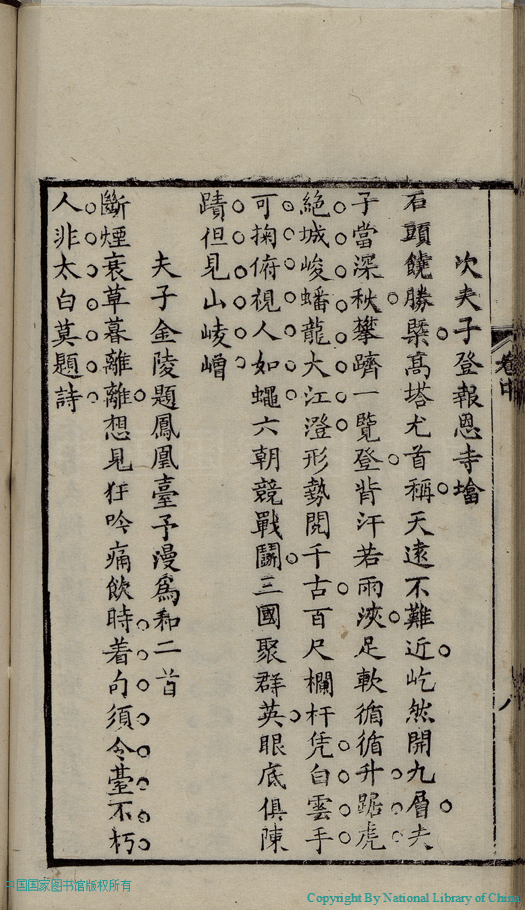 次夫子登報恩寺墖
石頭饒勝槩高塔尤首稱天遠不難近屹然開九層夫
子當深秋攀躋一覽登背汗若雨浹足軟循循升踞虎
絕城峻蟠龍大江澄形勢閱千古百尺欄杆凭白雲手
可掬俯視人如蠅六朝競戰鬭三國聚群英眼底俱陳
蹟但見山崚嶒
夫子金陵題鳳凰臺予漫為和二首
斷煙衰草暮離離想見狂吟痛飲時着句須令臺不朽
人非太白莫題詩
卷中
八
中国国家图书馆版权所有
Copyright By National Library of China